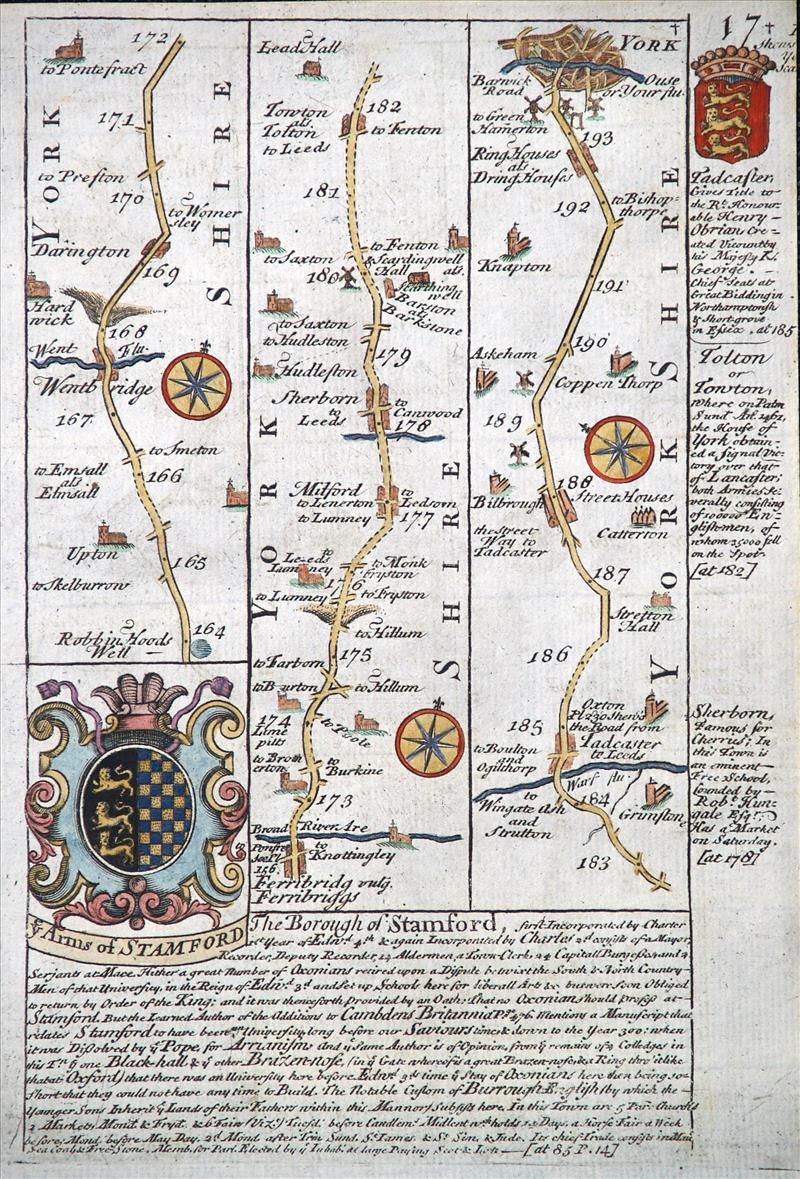 172
to Pontefract
171
to Preston
170
to Womer
sley
Darington
169
Hard
wick
168
Went Flu.
Wentbridge
167
to Smeton
166
to Emsall
als
Elmsall
Upton
165
to Skelburrow
164
Robbin Hoods
Well
YORK
SHIRE
Lead Hall
182
Towton
als.
Tolton
to Leeds
to Fenton
181
to Fenton
to Saxton
& Scardingwell
Hall als.
180
Scarthing
well
Barston
als
Barkstone
to Saxton
to Hudleston
179
Hudleston
Sherborn
to
Leeds
to
Canwood
178
Milford
to Lenerton
to Lumney
to
Ledsom
177
Leeds to
Lumney
to Monk
Fryston
176
to Lumney
to Fryston
to Hillum
to Farborn
175
to Burton
to Hillum
174
Lime
pitts
to Poole
to Broth
erton
to
Burkine
173
Broad
River Are
to
Pomfret
to
Knottingley
Ferribridg vulg.
Ferribriggs
YORK
SHIRE
YORK
Barwick
Road
Ouse
or Your flu.
to Green
Hamerton
193
Ring Houses
als
Dring Houses
192
to Bishop-
thorpe
Knapton
191
190
Askeham
Coppen Thorp
189
188
Street Houses
Bilbrough
Catterton
the street
Way to
Tadcaster
187
Stretton
Hall
186
Oxton
Pl 230 Shews
the Road from
185
Tadcaster
to Leeds
to Boulton
and
Ogilthorp
Warf flu.
184
to
Wingate Ash
and
Strutton
Grimston
183
YORK
SHIRE
17
Tadcaster,
Gives Title to
the Rt. Honour
able Henry-
Obrian Cre-
ated Vicount by
his Majesty K.
George.-
Chief Seats at
Great Bidding in
Northamptonsh
& Short-grove
in Essex. at 185
Tolton
or
Towton,
Where on Palm
Sund. An. 1461,
the House of
York obtain-
ed a Signal Vic-
tory over that
of Lancaster;
both Armies Se-
verally consisting
of 100000 En-
glish-men, of
whom 35000 fell
on the Spot.
[at 182]
Sherborn,
Famous for
Cherries; In
this Town is
an eminent
Free School,
founded by
Robt. Hun-
gate Esqr.
Has a Market
on Saturday.
[at 178]
ye Arms of STAMFORD
The Borough of Stamford, first Incorporated by Charter
1st year of Edwd. 4th & again Incorporated by Charles 2d consists of a Mayor,
Recorder, Deputy Recorder, 12 Aldermen, a Town-Clerk, 24 Capitall Burgesses and 2
Serjants at Mace. Hither a great Number of Oxonians retired upon a Dispute betwixt the South & North Country-
Men of that University, in the Reign of Edwd. 3d and Set up Schools here for liberall Arts &c but were soon Obliged
to return by Order of the King; and it was thenceforth provided by an Oath: That no Oxonian should profess at
Stamford. But the Learned Author of the Additions to Cambdens Britannia Pa. 476. Mentions a Manuscript that
relates Stamford to have been an University long before our Saviours time & down to the Year 300: when
it was Dissolved by ye Pope, for Arrianism and ye same Author is of Opinion, from ye remains of 2 Colledges in
this Tn. ye one Black-hall & ye other Brazen-nose, (in ye Gate whereof is a great Brazen-nose & a Ring thro' it like
that at Oxford) that there was an University here before Edwd 3ds time ye Stay of Oxonians here then being so
short that they could not have any time to Build. The Notable Custom of Burrough English (by which the
Younger Sons Inherit ye Lands of their Fathers within this Mannor) Subsists here. In this Town are 5 Par. Churchs
2 Markets, Mond. & Fryd. & 6 Fairs (Viz.) Tuesd. before Candlems. Midlent wch holds 12 Days, a Horse Fair a Week
before, Mond. before May Day, 2d Mond after Trin Sund. St. James. & St. Sim. & Jude. Its chief Trade consists in Malt,
Sea Coal & Free-Stone. Memb. for Parl. Elected by ye Inhab. at large Paying Scot & Lott-[at 85 P. 14]